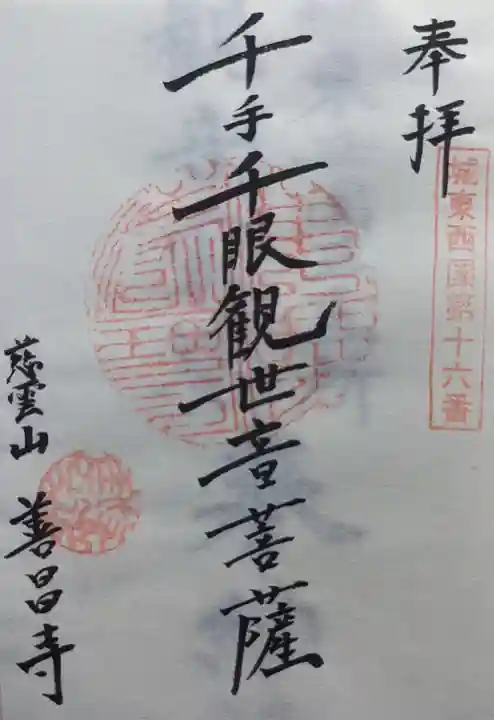 奉拝
城東西國第十六番
千手千眼観世音菩薩
慈雲山 善昌寺